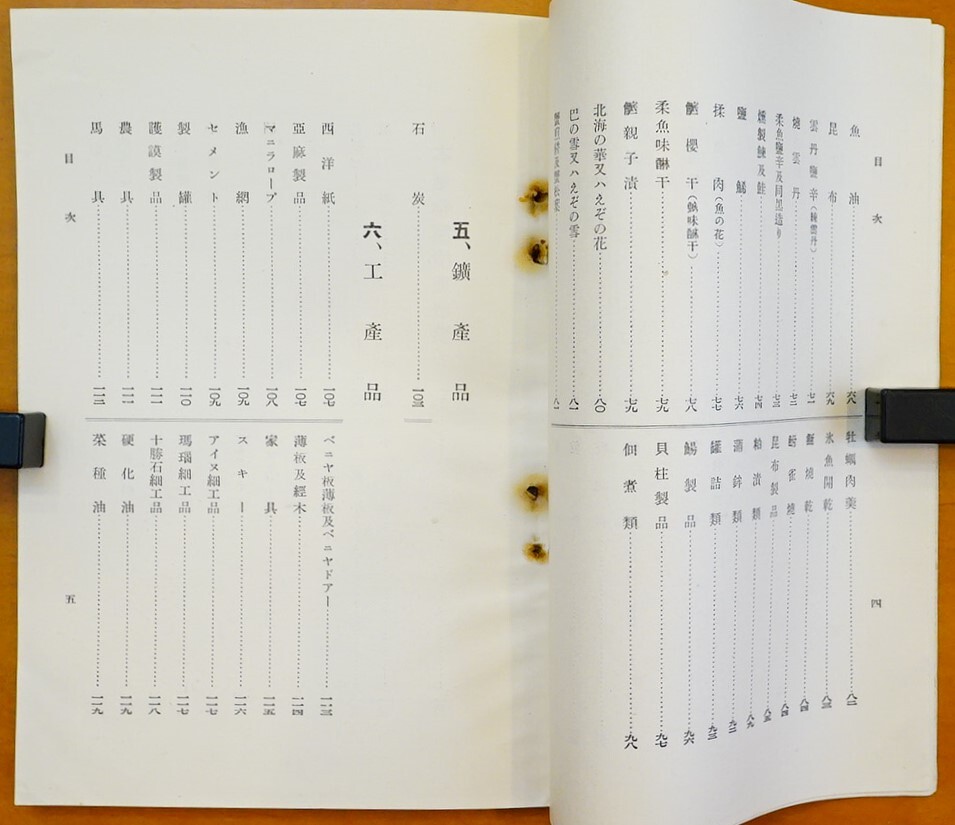 目次
四
魚油 六八
昆布 六九
雲丹鹽辛(鹽雲丹) 七一
燒雲丹 七二
柔魚鹽辛及同黑造り 七三
燻製鰊及鮭 七四
鹽鯣 七六
揉肉(魚の花) 七七
七八
柔魚味醂干 七九
親子漬 七九
北海の華又ハえぞの花 八〇
巴の雪又ハえぞの雪 八一
牡蠣肉羹 八二
氷魚開乾 八三
燒乾 八四
雀燒 八四
昆布製品 八五
粕漬類 八九
蒲鉾類 九二
罐詰類 九三
鯣製品 九六
貝柱製品 九七
佃煮類 九八
五、鑛產品
石炭 一〇三
六、工產品
西洋紙 一〇七
亞麻製品 一〇七
マニラロープ 一〇八
漁網 一〇九
セメント 一〇九
製罐 一一〇
護謨製品 一一一
農具 一一一
馬具 一一三
ベニヤ板薄板及ベニヤドアー 一一三
薄板及經木 一一四
家具 一一五
スキー 一一六
アイヌ細工品 一一七
瑪瑙細工品 一一七
十勝石細工品 一一八
硬化油 一一九
菜種油 一一九
目次
五